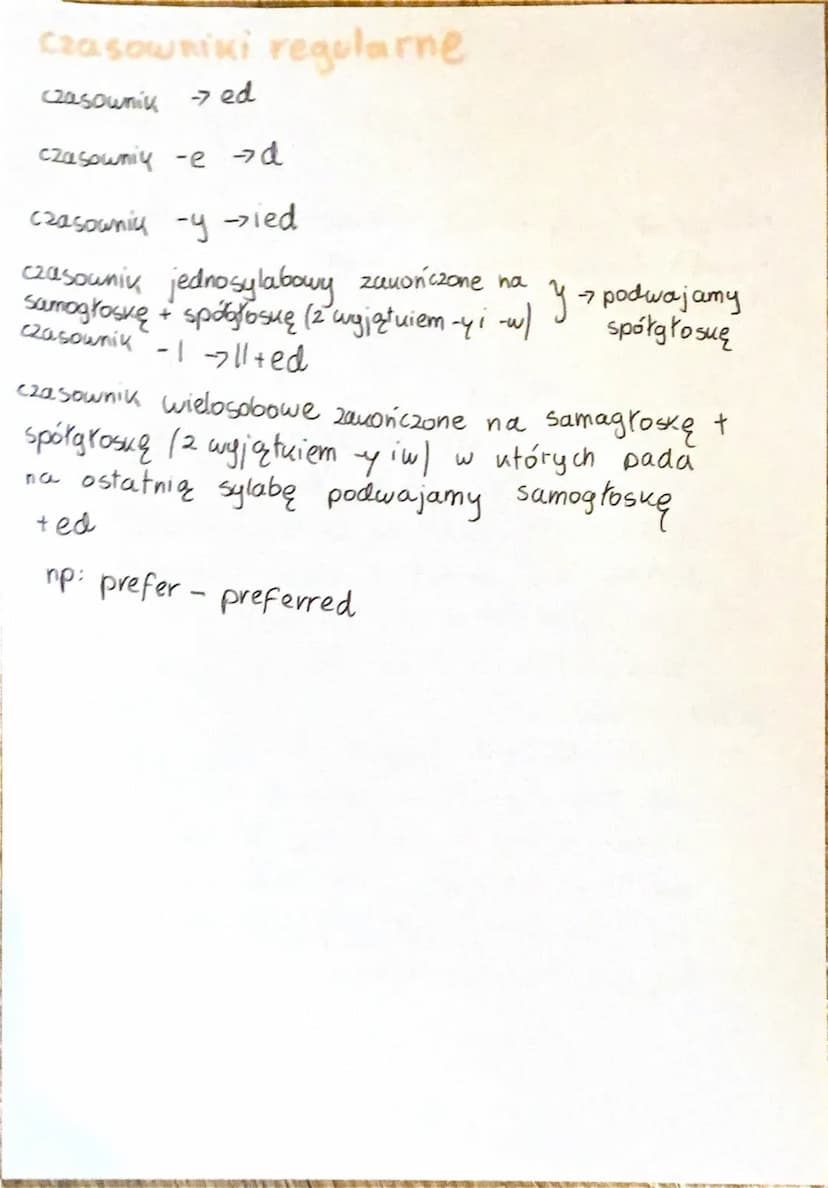 czasowniki regularne
czasownik → ed
czasownik -e → d
czasownik -y → ied
czasownik jednosylabowy zakończone na
samogłoskę + spółgłoskę (z wyjątkiem -y i -w) } → podwajamy spółgłoskę
czasownik -l → ll+ed
czasownik wielosobowe zakończone na samagłoskę +
spółgłoskę (z wyjątkiem -y i w) w których pada
na ostatnią sylabę podwajamy samogłoskę
+ ed
np: prefer - preferred